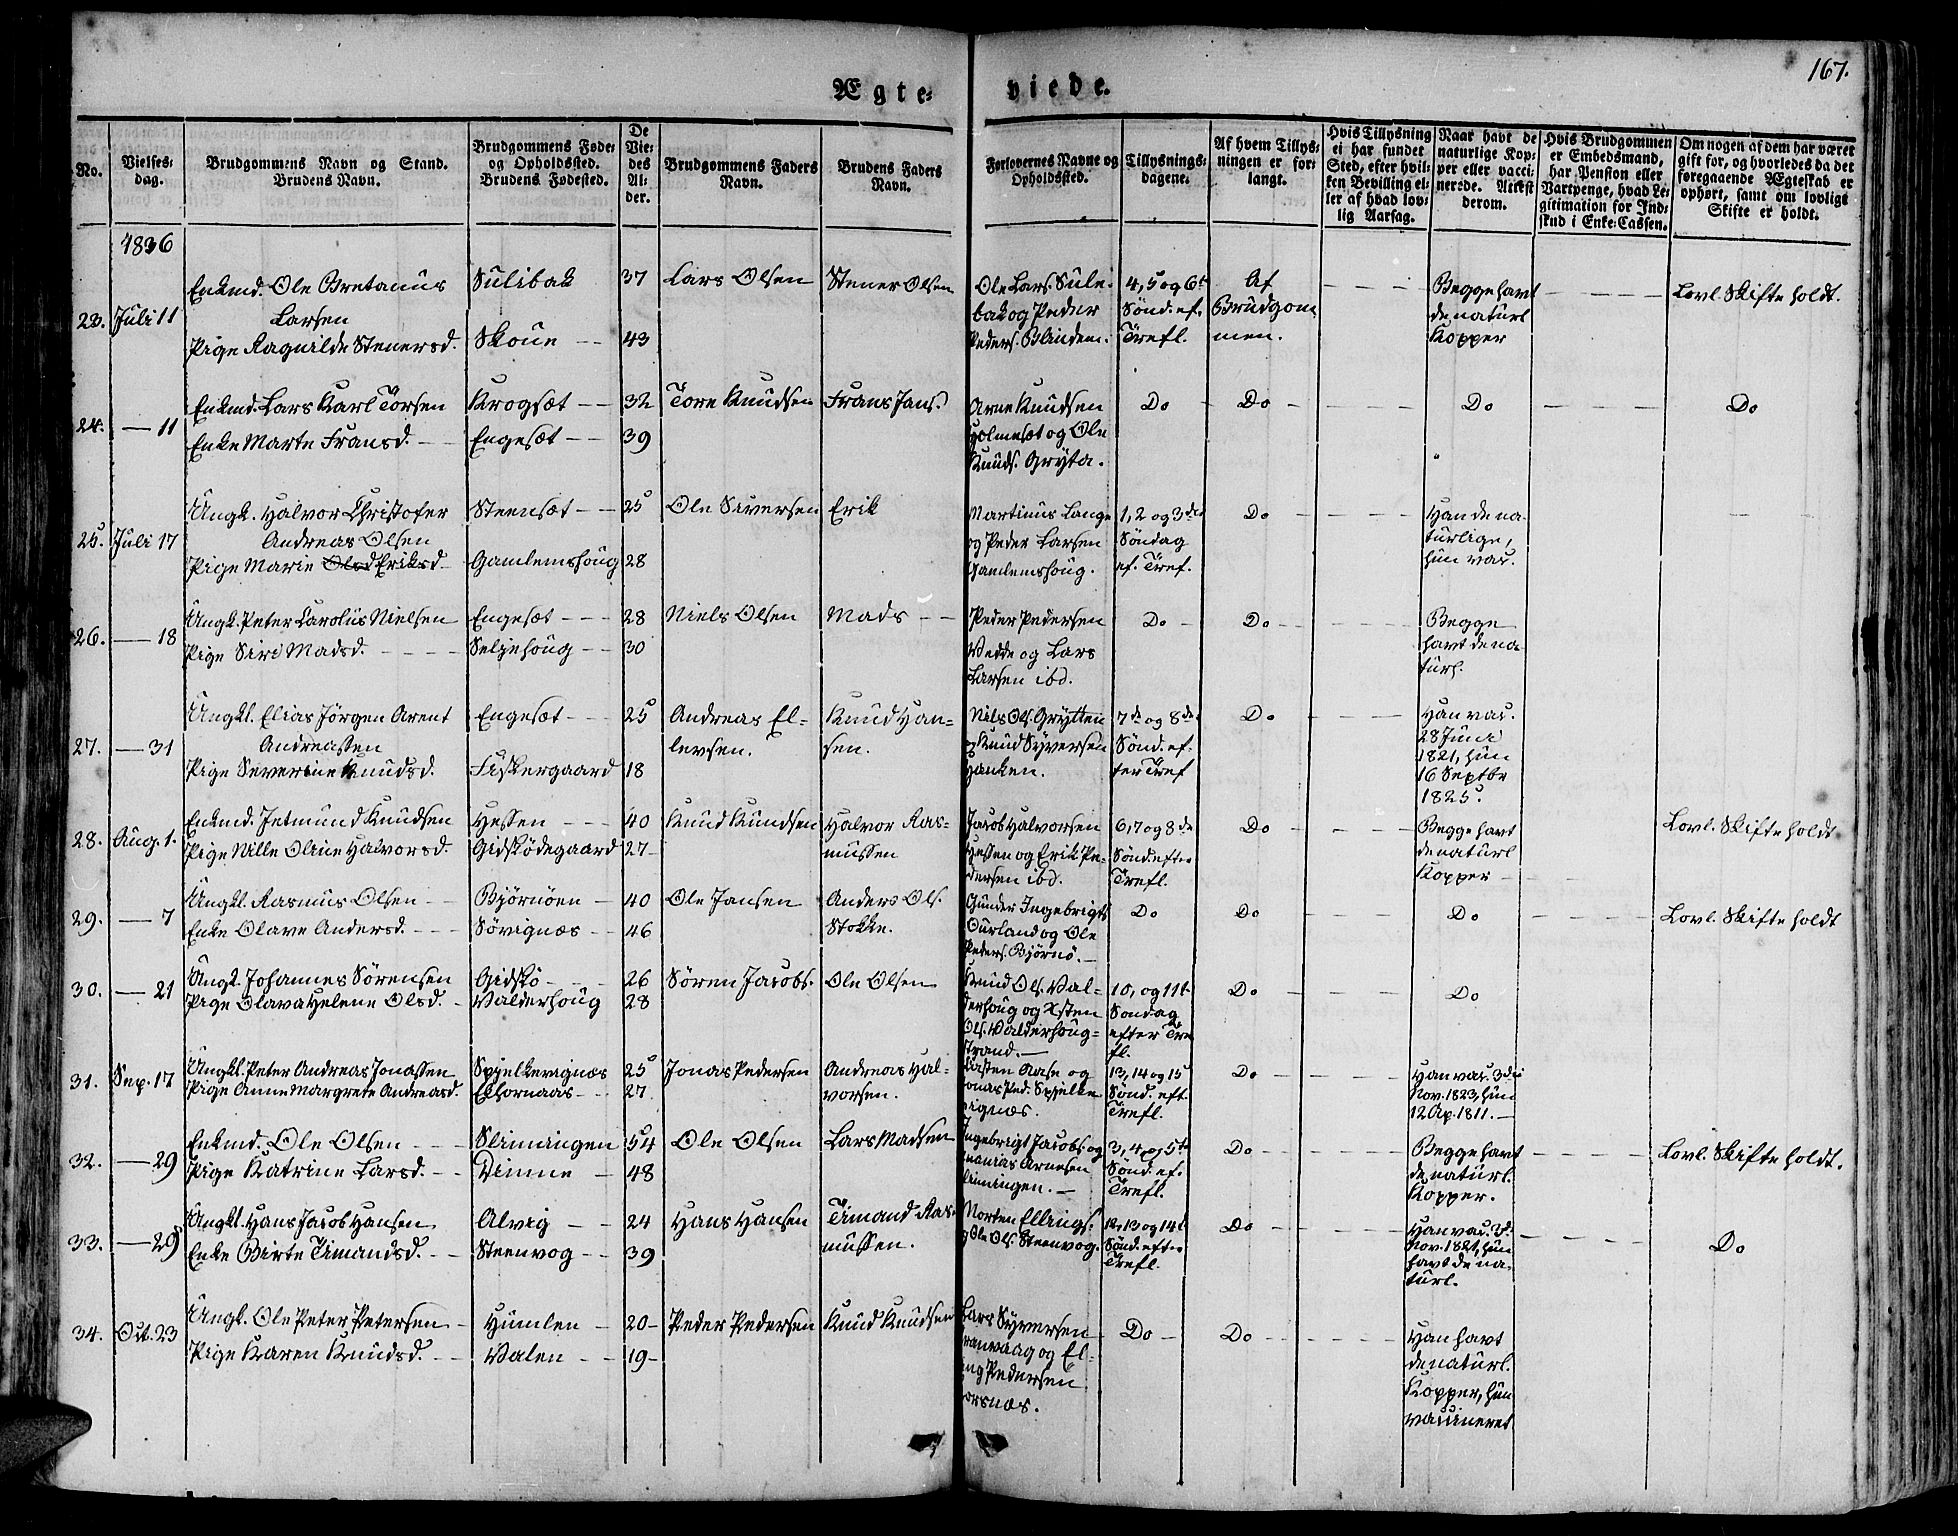 167.
Ægte= viede.
No.
Vielses=
dag.
Brudgommens Navn og Stand.
Brudens Navn.
Brudgommens Føde=
og Opholdssted.
Brudens Fødested.
De
Vie=
des
Al=
der.
Brudgommens Faders
Navn.
Brudens Faders
Navn.
Forlovernes Navne og
Opholdssted.
Tillysnings=
dagene.
Af hvem Tillys=
ningen er for=
langt.
Hvis Tillysning
ei har fundet
Sted, efter hvil=
ken Bevilling el=
ler af hvad lov=
lig Aarsag.
Naar havt de
naturlige Kop=
per eller vacci=
nerede. Attest
derom.
Hvis Brudgommen
er Embedsmand,
har Pension eller
Vartpenge, hvad Le=
gitimation for Ind=
skud i Enke=Cassen.
Om nogen af dem har været
gift før, og hvorledes da det
foregaaende Ægteskab er
ophørt, samt om lovligt
Skifte er holdt.
1836
23. Juli 11
Enkmd. Ole Bretanus
Larsen
Pige Ragnilde Stenersd.
Sulebak
Skoue
37
43
Lars Olsen
Stener Olsen
Ole Lars. Sule=
bak og Peder
Peders. Blindem.
4, 5 og 6t
Sønd. ef.
Trefl.
Af
Brudgom
men.
Begge havt
de naturl
Kopper
Lovl. Skifte holdt.
24. — 11
Enkmd. Lars Karl Torsen
Enke Marte Fransd.
Krogsæt
Engesæt
32
39
Tore Knudsen
Frans Jans.
Arne Knudsen
Holmesæt og Ole
Knuds. Gryta.
Do
Do
Do
Do
25. Juli 17
Ungk. Halvor Christofer
Andreas Olsen
Pige Marie Olsd Eriksd
Steensæt
Gamlemshoug
25
28
Ole Siversen
Erik
Martinus Lange
og Peder Larsen
Gamlemshoug.
1, 2 og 3de
Søndag
ef. Tref.
Do
Han de na=
turlige,
hun vac.
26. — 18
Ungk. Peter Carolus Nielsen
Pige Siri Madsd.
Engesæt
Seljehoug
28
30
Niels Olsen
Mads
Peder Pedersen
Vedde og Lars
Larsen ibd.
Do
Do
Begge
havt de na=
turl.
27. — 31
Ungkl. Elias Jörgen Arent
Andreassen
Pige Severine Knudsd.
Engesæt
Fiskergaard
25
18
Andreas El=
levsen.
Knud Han=
sen.
Niels Ols. Grytten
og Knud Syversen
Hanken.
7de og 8de
Sønd. ef.
ter Tref
Do
Han vac.
28 Juni
1821, hun
16 Septbr
1825.
28. Aug. 1.
Enkmd. Jetmund Knudsen
Pige Nille Oline Halvorsd.
Hessen
Gidskødegaard
40
27
Knud Knudsen
Halvor Ras=
mussen
Jacob Halvorsen
Hessen og Erik Pe=
dersen ibd.
6, 7 og 8de
Sønd. efter
Trefl.
Do
Begge havt
de naturl
Kopper
Lovl. Skifte holdt
29. — 7
Ungkl. Rasmus Olsen
Enke Olave Andersd.
Bjørnøen
Søvignæs
40
46
Ole Jansen
Anders Ols.
Stokke.
Gunder Ingebrigts
Ourland og Ole
Peders. Bjørnø.
Do
Do
Do
Lovl. Skifte holdt
30. — 21
Ungk. Johannes Sörensen
Pige Olava Helene Olsd.
Gidskö
Valderhoug
26
28
Sören Jacobs.
Ole Olsen
Knud Ols. Val=
derhoug og Osten
Ols. Valderhoug=
strand.
10, og 11t.
Søndag
efter Tre
fl.
Do
Do
31. Sep. 17
Ungkl. Peter Andreas Jonassen
Pige Anne Margrete Andreasd.
Spjelkevignæs
Ethornaas
25
27
Jonas Pedersen
Andreas Hal=
vorsen.
Aase og
Jonas Ped. Spjelke
vignæs.
13, 14 og 15
Sønd. eft.
Trefl.
Do
Han vac. 3die
Nov. 1823, hun
12 Ap. 1811.
32. — 29
Enkmd. Ole Olsen
Pige Katrine Larsd.
Slinningen
Vinne
54
48
Ole Olsen
Lars Madsen
Ingebrigt Jacobs og
Ananias Arnesen
Slinningen.
3, 4 og 5te
Sønd. ef.
Trefl.
Do
Begge havt
de naturl.
Kopper.
Lovl. Skifte holdt.
33. — 29
Ungkl. Hans Jacob Hansen
Enke Birte Timandsd.
Alvig
Steenvog
24
39
Hans Hansen
Timand Ras=
mussen.
Morten Ellings.
og Ole Ols. Steenvog.
12, 13 og 14t
Sønd. efter
Trefl.
Do
Han vac. 3de
Nov. 1821, hun
havt de na=
turl.
Do
34. Oct. 23
Ungk. Ole Peter Petersen
Pige Karen Knudsd.
Humlen
Valen
20
19
Peder Pedersen
Knud Knudsen
Lars Syversen
ranvaag og El=
ling Pedersen
orsnæs.
Do
Do
Han havt
de naturl.
Kopper, hun
vaccineret